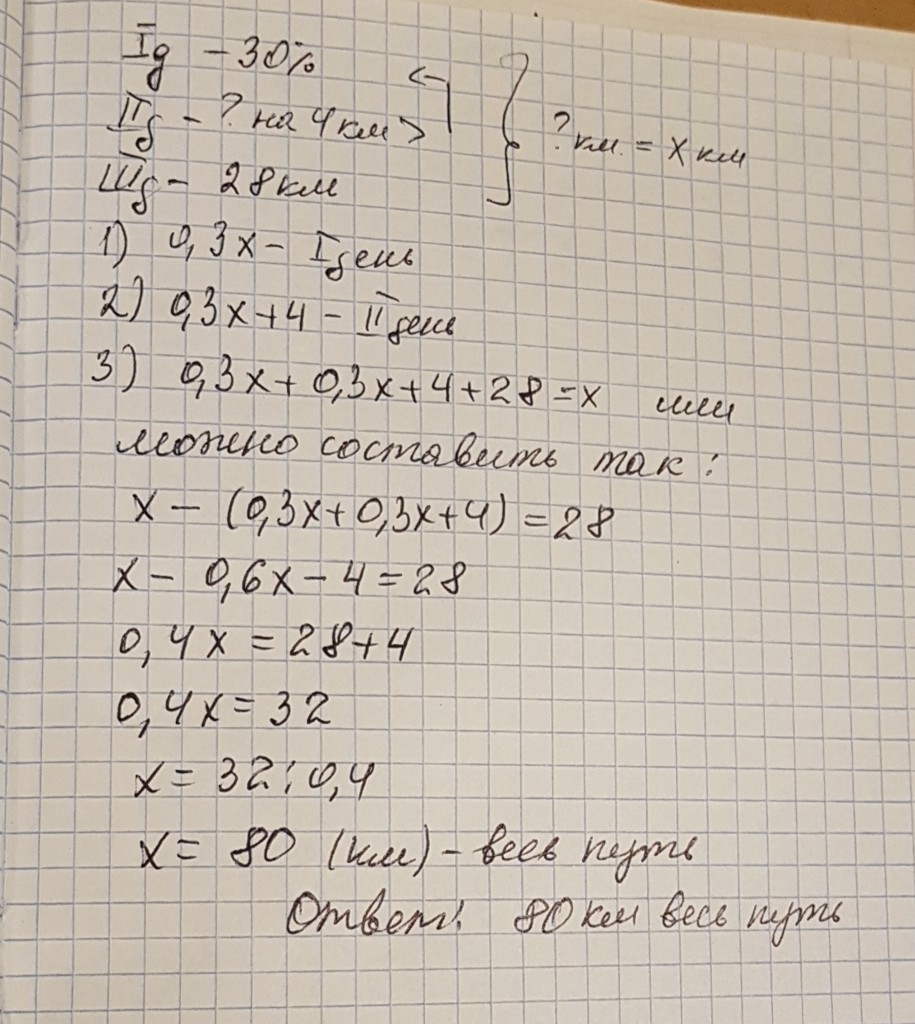 Iд - 30%
IIд - ? на 4 км >
? км. = x км
IIIд - 28 км
1) 0,3x - I день
2) 0,3x + 4 - II день
3) 0,3x + 0,3x + 4 + 28 = x или
можно составить так:
x - (0,3x + 0,3x + 4) = 28
x - 0,6x - 4 = 28
0,4x = 28 + 4
0,4x = 32
x = 32 : 0,4
x = 80 (км) - весь путь
Ответ: 80 км весь путь